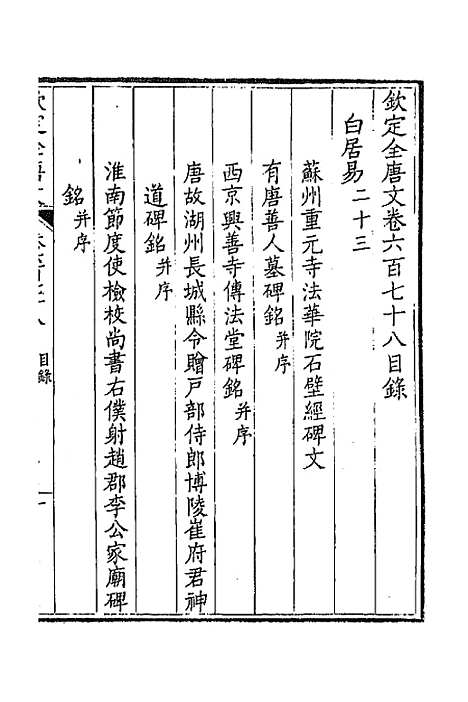 欽定全唐文卷六百七十八目錄
白居易二十三
蘇州重元寺法華院石壁經碑文
有唐善人墓碑銘并序
西京興善寺傳法堂碑銘并序
唐故湖州長城縣令贈戸部侍郎博陵崔府君神
道碑銘并序
淮南節度使檢校尚書右僕射趙郡李公家廟碑
銘并序
目錄